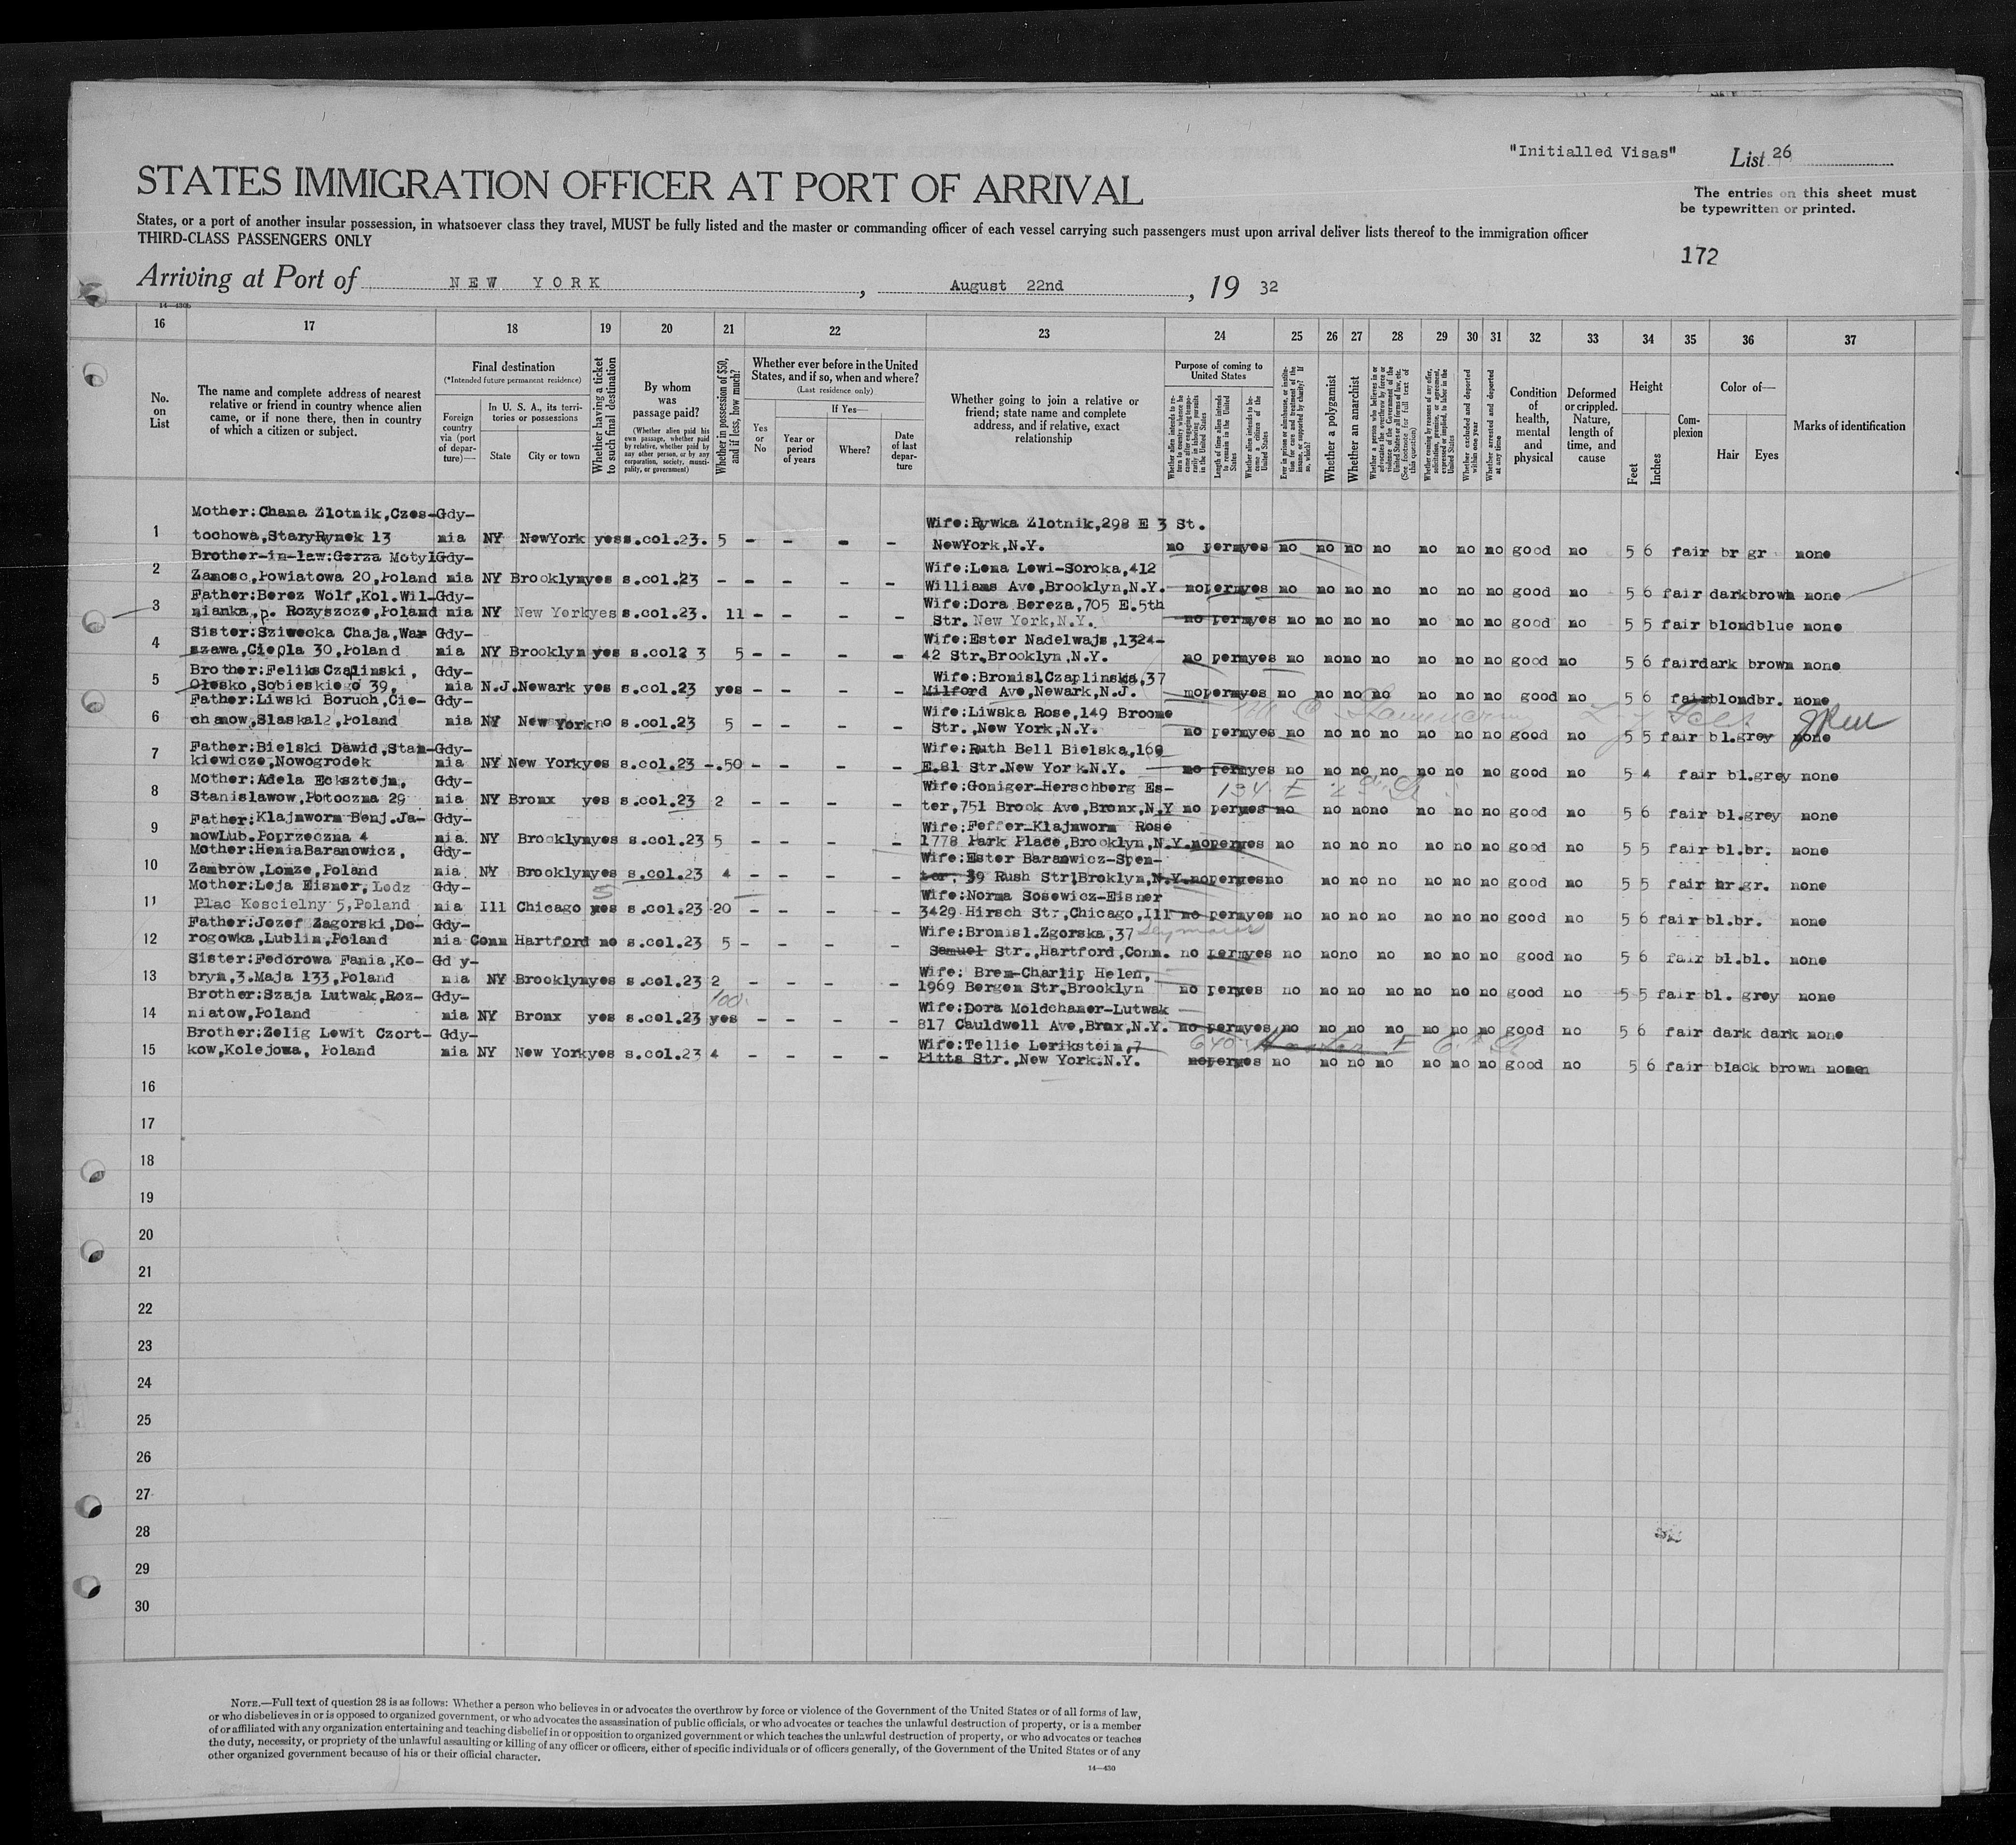 "Initialled Visas" List 26
STATES IMMIGRATION OFFICER AT PORT OF ARRIVAL
The entries on this sheet must
be typewritten or printed.
States, or a port of another insular possession, in whatsoever class they travel, MUST be fully listed and the master or commanding officer of each vessel carrying such passengers must upon arrival deliver lists thereof to the immigration officer
THIRD-CLASS PASSENGERS ONLY
172
Arriving at Port of NEW YORK, August 22nd, 19 32
14—430b
16 17 18 19 20 21 22 23 24 25 26 27 28 29 30 31 32 33 34 35 36 37
No. on List
The name and complete address of nearest relative or friend in country whence alien came, or if none there, then in country of which a citizen or subject.
Final destination
(*Intended future permanent residence)
Foreign country via (port of departure)—
In U. S. A., its territories or possessions
State City or town
Whether having a ticket to such final destination
By whom was passage paid?
(Whether alien paid his own passage, whether paid by relative, whether paid by any other person, or by any corporation, society, municipality, or government)
Whether in possession of $50, and if less, how much?
Whether ever before in the United States, and if so, when and where?
(Last residence only)
Yes or No
If Yes—
Year or period of years
Where?
Date of last departure
Whether going to join a relative or friend; state name and complete address, and if relative, exact relationship
Purpose of coming to United States
Length of time alien intends to remain in the United States
Whether alien intends to become a citizen of the United States
Whether a polygamist
Whether an anarchist
Whether excluded and deported within one year
Whether arrested and deported at any time
Condition of health, mental and physical
Deformed or crippled. Nature, length of time, and cause
Height
Feet Inches
Complexion
Color of—
Hair Eyes
Marks of identification
Mother:Chana Zlotnik,Czes- Gdy- Wife:Rywka Zlotnik,298 E 3 St.
1 tochowa,StaryRynek 13 nia NY NewYork yes s.col.23. 5 - - - - NewYork,N.Y. no perm yes no no no no no no no good no 5 6 fair br gr none
Brother-in-law:Gerza Motyl Gdy- Wife:Lena Lewi-Soroka,412
2 Zamosc,Powiatowa 20,Poland nia NY Brooklyn yes s.col.23 - - - - - Williams Ave,Brooklyn,N.Y. no perm yes no no no no no no no good no 5 6 fair dark brown none
Father:Berez Wolf,Kol.Wil- Gdy- Wife:Dora Bereza,705 E.5th
3 nianka,p. Rozyszcze,Poland nia NY New York yes s.col.23. 11 - - - - Str. New York,N.Y. no perm yes no no no no no no no good no 5 5 fair blond blue none
Sister:Sziwecka Chaja,War Gdy- Wife:Ester Nadelwajs,1324-
4 szawa,Ciepla 30,Poland nia NY Brooklyn yes s.col2 3 5 - - - - 42 Str.Brooklyn,N.Y. no perm yes no no no no no no no good no 5 6 fair dark brown none
Brother:Feliks Czaplinski, Gdy- Wife:Bronisl.Czaplinska,37
5 Olesko,Sobieskiego 39, nia N.J. Newark yes s.col.23 yes - - - - Milford Ave,Newark,N.J. no perm yes no no no no no no no good no 5 6 fair blond br. none
Father:Liwski Boruch,Cie- Gdy- Wife:Liwska Rose,149 Broome
6 chanow,Slaska12,Poland nia NY New York no s.col.23 5 - - - - Str.,New York,N.Y. no perm yes no no no no no no no good no 5 5 fair bl.grey none
Father:Bielski Dawid,Stan- Gdy- Wife:Ruth Bell Bielska,160
7 kiewicze,Nowogrodek nia NY New York yes s.col.23 -.50 - - - - E.81 Str.New York.N.Y. no perm yes no no no no no no no good no 5 4 fair bl.grey none
Mother:Adela Ecksztejn, Gdy- Wife:Goniger-Herschberg Es-
8 Stanislawow,Potoczna 29 nia NY Bronx yes s.col.23 2 - - - - ter,751 Brook Ave,Bronx,N.Y no perm yes no no no no no no no good no 5 6 fair bl.grey none
Father:Klajnworm Benj.Ja- Gdy- Wife:Feffer-Klajnworm Rose
9 nowLub.Poprzeczna 4 nia. NY Brooklyn yes s.col.23 5 - 1778 Park Place,Brooklyn,N.Y. no perm yes no no no no no no no good no 5 5 fair bl.br. none
Mother:HeniaBaranowicz, Gdy- Wife:Ester Baranwicz-Spen-
10 Zambrow,Lomze,Poland nia NY Brooklyn yes s.col.23 4 - - - - ter, 39 Rush Str,Broklyn,N.Y. no perm yes no no no no no no no good no 5 5 fair br.gr. none
Mother:Leja Eisner,Lodz Gdy- Wife:Norma Sosewicz-Eisner
11 Plac Koscielny 5,Poland nia Ill Chicago yes s.col.23 20 - - - - 3429 Hirsch Str,Chicago,Ill no perm yes no no no no no no no good no 5 6 fair bl.br. none
Father:Jozef Zagorski,Do- Gdy- Wife:Bronisl.Zgorska,37 Seymour
12 rogowka,Lublin,Poland nia Conn Hartford no s.col.23 5 - - - - Samuel Str.,Hartford,Conn. no perm yes no no no no no no no good no 5 6 fair bl.bl. none
Sister:Fedorowa Fania,Ko- Gdy- Wife: Brem-Charlip Helen,
13 bryn,3.Maja 133,Poland nia NY Brooklyn yes s.col.23 2 - - - - 1969 Bergen Str,Brooklyn no perm yes no no no no no no no good no 5 5 fair bl. grey none
Brother:Szaja Lutwak,Roz- Gdy- 100. Wife:Dora Moldchaner-Lutwak
14 niatow,Poland nia NY Bronx yes s.col.23 yes - - - - 817 Cauldwell Ave,Bronx,N.Y. no perm yes no no no no no no no good no 5 6 fair dark dark none
Brother:Zelig Lewit Czort- Gdy- Wife:Tellie Lerikstein,7
15 kow,Kolejowa, Poland nia NY New York yes s.col.23 4 - - - - Pitts Str.,New York.N.Y. no perm yes no no no no no no no good no 5 6 fair black brown none
16
17
18
19
20
21
22
23
24
25
26
27
28
29
30
NOTE.—Full text of question 28 is as follows: Whether a person who believes in or advocates the overthrow by force or violence of the Government of the United States or of all forms of law,
or who disbelieves in or is opposed to organized government, or who advocates the assassination of public officials, or who advocates or teaches the unlawful destruction of property, or is a member
of or affiliated with any organization entertaining and teaching disbelief in or opposition to organized government or which teaches the unlawful destruction of property, or who advocates or teaches
the duty, necessity, or propriety of the unlawful assaulting or killing of any officer or officers, either of specific individuals or of officers generally, of the Government of the United States or of any
other organized government because of his or their official character.
14—430